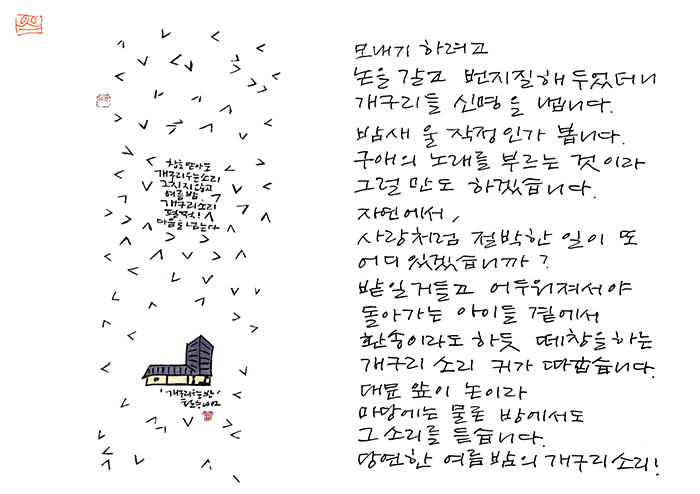 창을 닫아도
개구리우는소리
그치지 않고
여름밤.
개구리소리
펄쩍!
넘는다
'개구리우는밤'
모내기 하려고
논을 갈고 번지질해 두었더니
개구리들 신명을 냅니다.
밤새 울 작정인가 봅니다.
구애의 노래를 부르는 것이라
그럴 만도 하겠습니다.
자연에서,
사랑처럼 절박한 일이 또
어디 있겠습니까?
밭일거들고 어두워져서야
돌아가는 아이들 곁에서
환송이라도 하듯 떼창을하는
개구리 소리 귀가 따갑습니다.
대문 앞이 논이라
마당에는 물론 방에서도
그 소리를 듣습니다.
당연한 여름밤의 개구리소리!